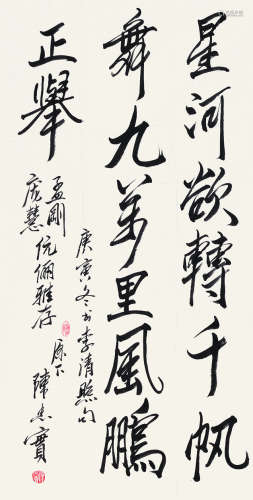 星河欲轉千帆
舞九萬里風鵬
正舉
庚寅冬書李清照句
孟剛
龐慧 伉儷雅存
原下
陳忠實